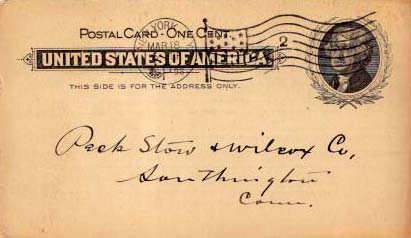 POSTAL CARD · ONE CENT.
NEW YORK
MAR 18
2
UNITED STATES OF AMERICA.
THIS SIDE IS FOR THE ADDRESS ONLY.
Peck Stow & Wilcox Co,
Southington
Conn.